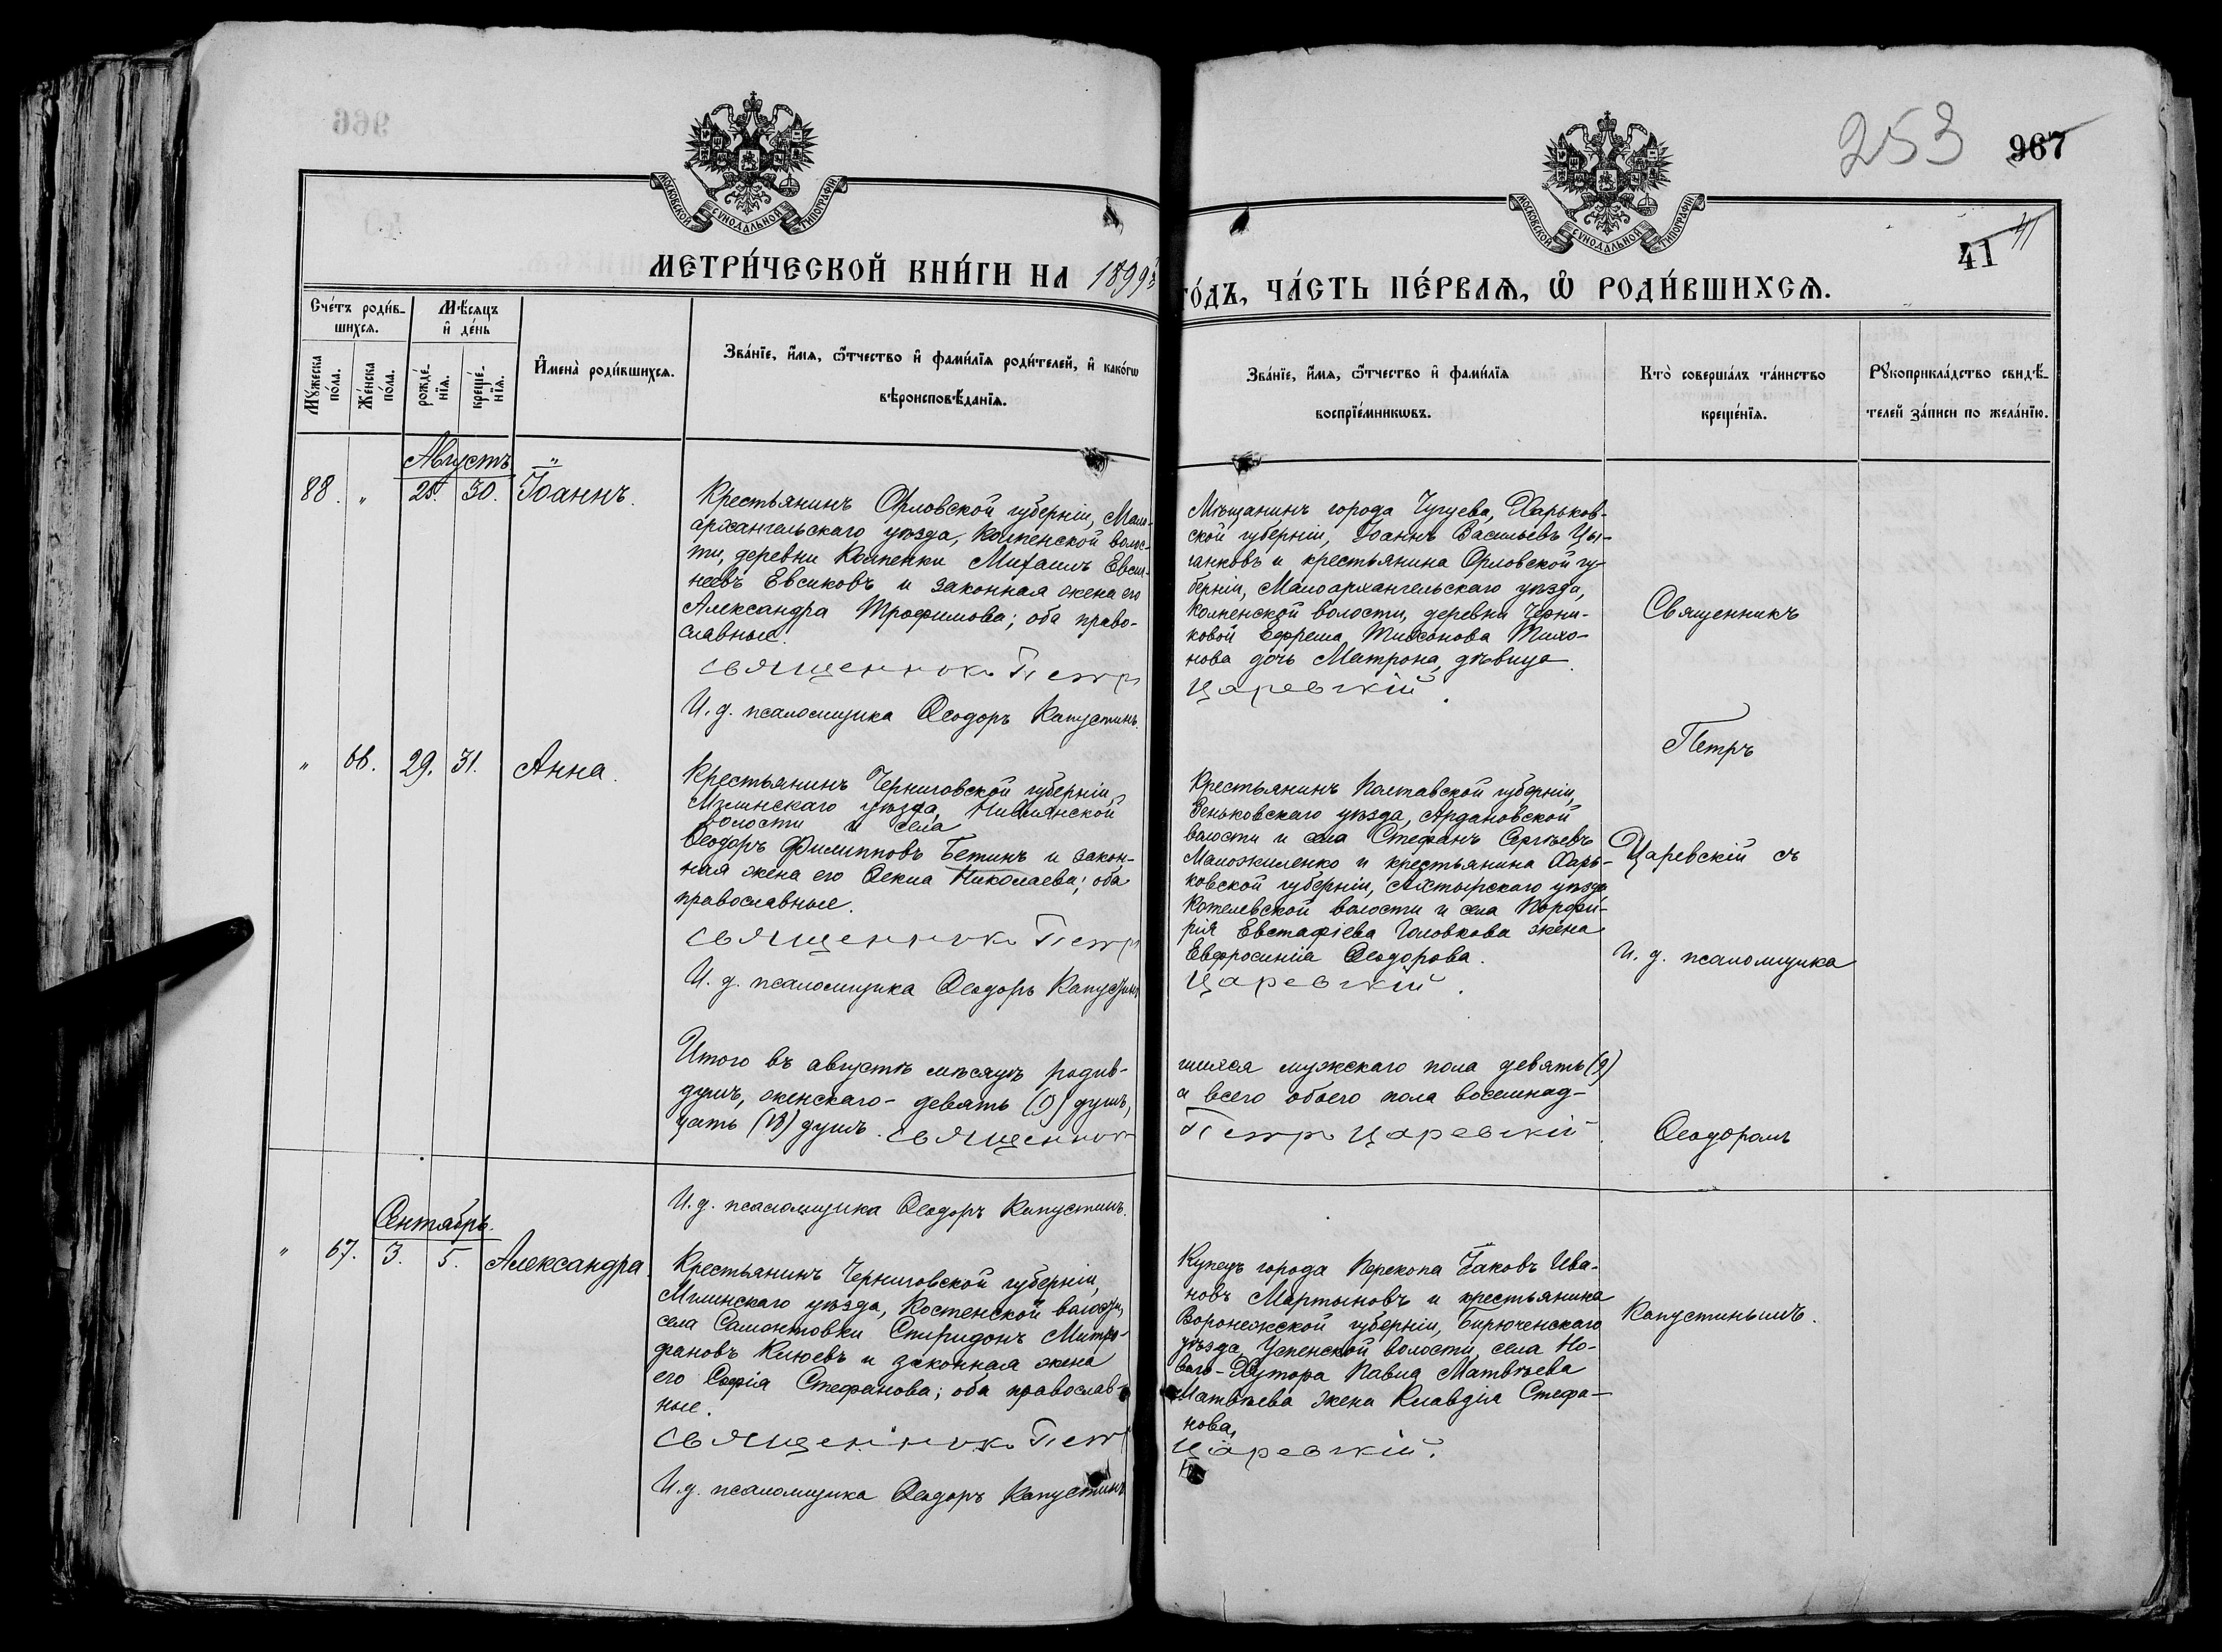 253 967
МОСКОВСКОЙ СѴНОДАЛЬНОЙ ТИПОГРАФІИ
МОСКОВСКОЙ СѴНОДАЛЬНОЙ ТИПОГРАФІИ
41
МЕТРИ́ЧЕСКОЙ КНИ́ГИ НА 1899
ГО́ДЪ, ЧА́СТЬ ПЕ́РВАѦ, Ѡ҆ РОДИ́ВШИХСѦ.
Сче́тъ роди́в-
шихсѧ.
Мꙋ́жеска по́ла.
Же́нска по́ла.
Мѣ́сѧцъ и҆ де́нь
рожде́-
нїѧ.
креще́-
нїѧ.
И҆мена̀ роди́вшихсѧ.
Зва́нїе, и҆́мѧ, ѻ҆́тчество и҆ фами́лїѧ роди́телей, и҆ како́гѡ
вѣроисповѣ́данїѧ.
Зва́нїе, и҆́мѧ, ѻ҆́тчество и҆ фами́лїѧ
воспрїе́мникѡвъ.
Кто̀ соверша́лъ та́инство
креще́нїѧ.
Рꙋкоприкла́дство свидѣ́-
телей за́писи по жела́нїю.
Августъ
88. " 28. 30. Іоаннъ.
Крестьянинъ Орловской губерніи, Мало-
архангельскаго уѣзда, Колпенской волос-
ти, деревни Колпенки Михаилъ
Евсиковъ и законная жена его
Александра Трофимова; оба право-
славные.
Священникъ Петръ
И. д. псаломщика Ѳеодоръ Капустинъ.
Мѣщанинъ города Чугуева, Харьков-
ской губерніи, Іоаннъ Васильевъ Цы-
ганковъ и крестьянина Орловской гу-
берніи, Малоархангельскаго уѣзда,
Колпенской волости, деревни Черни-
ковой Ефрема Тихонова Тихо-
нова дочь Матрона, дѣвица.
Царевскій.
Священникъ
Петръ
Царевскій съ
И. д. псаломщика
Ѳеодоромъ
Капустинымъ.
" 66. 29. 31. Анна.
Крестьянинъ Черниговской губерніи,
Мглинскаго уѣзда, Нивнянской
волости и села
Ѳеодоръ Филипповъ Бетинъ и закон-
ная жена его Ѳекла Николаева; оба
православные.
Священникъ Петръ
И. д. псаломщика Ѳеодоръ Капустинъ
Крестьянинъ Полтавской губерніи,
Зеньковскаго уѣзда,
волости и села Стефанъ Сергѣевъ
Маложиленко и крестьянина Харь-
ковской губерніи, Ахтырскаго уѣзда
Котелевской волости и села Порфи-
рія Евстафіева Головкова жена
Евфросинія Ѳеодорова.
Царевскій.
Итого въ августѣ мѣсяцѣ родив-
шихся мужскаго пола девять (9)
душъ, женскаго - девять (9) душъ,
а всего обоего пола восемнад-
цать (18) душъ. Священникъ
Петръ Царевскій.
И. д. псаломщика Ѳеодоръ Капустинъ.
Сентябрь.
" 67. 3. 5. Александра.
Крестьянинъ Черниговской губерніи,
Мглинскаго уѣзда, Костенской волости,
села Самонтовки Спиридонъ Митро-
фановъ Клюевъ и законная жена
его Софія Стефанова; оба православ-
ные.
Священникъ Петръ
И. д. псаломщика Ѳеодоръ Капустинъ
Купецъ города Перекопа Іаковъ Ива-
новъ Мартыновъ и крестьянина
Воронежской губерніи, Бирюченскаго
уѣзда, Успенской волости, села Но-
ваго-Хутора Павла Матвѣева
Матвѣева жена Клавдія Стефа-
нова.
Царевскій.